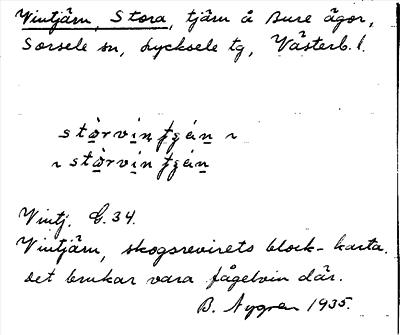 Vintjärn, Stora, tjärn å Sure ägor,
Sorsele sn, Lycksele tg, Västerb. l.
Vintj. G. 34.
Vintjärn, skogsrevirets block-karta.
Det brukar vara fågelvin där.
B. Nygren 1935.